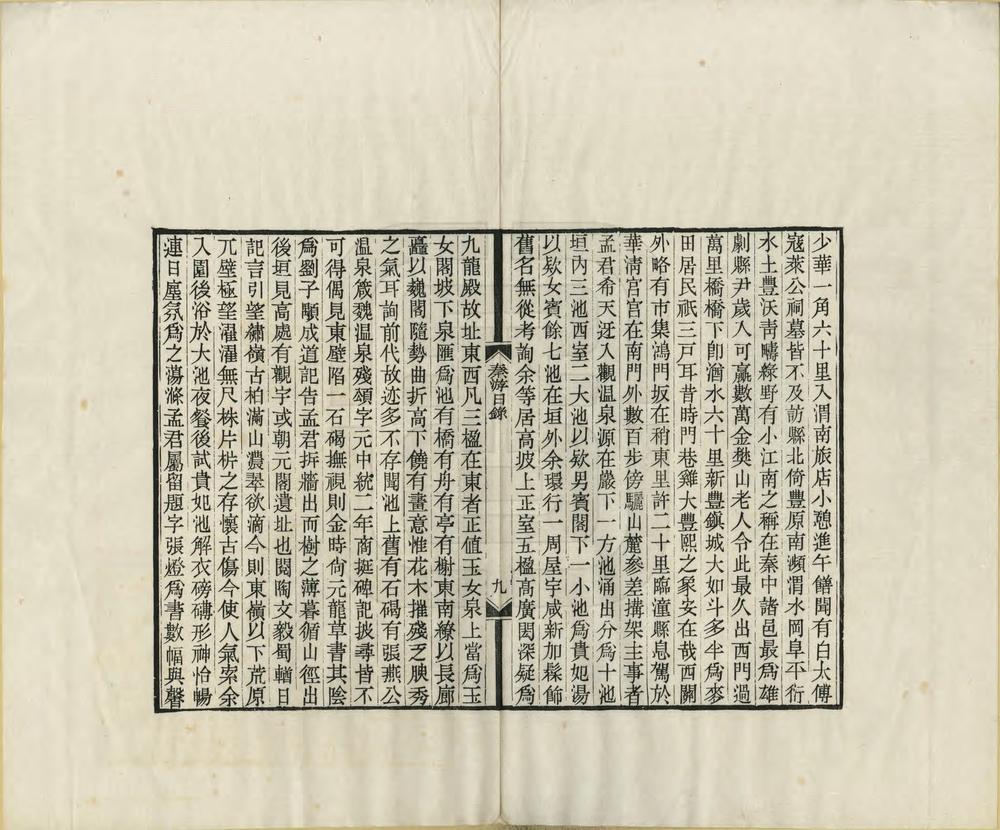 少華一角六十里入渭南旅店小憩進午饍聞有白太傅
寇萊公祠墓皆不及訪縣北倚豐原南瀕渭水岡阜平衍
水土豐沃靑疇綠野有小江南之稱在秦中諸邑最爲雄
劇縣尹歲入可贏數萬金樊山老人令此最久出西門過
萬里橋橋下卽湭水六十里新豐鎭城大如斗多半爲麥
田居民祇三戸耳昔時門巷雞犬豐熙之象安在哉西關
外略有市集鴻門坂在稍東里許二十里臨潼縣息駕於
華淸宮宮在南門外數百步傍驪山麓參差搆架主事者
孟君希天迓入觀温泉源在巖下一方池涌出分爲十池
垣內三池西室二大池以欵男賓閣下一小池爲貴妃湯
以欵女賓餘七池在垣外余環行一周屋宇咸新加髹飾
舊名無從考詢余等居高坡上正室五楹高廣閎深疑爲
秦游日錄
九
九龍殿故址東西凡三楹在東者正値玉女泉上當爲玉
女閣坡下泉匯爲池有橋有舟有亭有榭東南繚以長廊
矗以巍閣隨勢曲折高下饒有畫意惟花木摧殘乏腴秀
之氣耳詢前代故迹多不存聞池上舊有石碣有張燕公
温泉箴魏温泉殘頌字元中統二年商挺碑記披尋皆不
可得偶見東壁陷一石碣撫視則金時尙元龍草書其陰
爲劉子顒成道記告孟君拆牆出而樹之薄暮循山徑出
後垣見高處有觀宇或朝元閣遺址也閱陶文毅蜀輶日
記言引望繡嶺古柏滿山濃翠欲滴今則東嶺以下荒原
兀壁極望濯濯無尺株片枿之存懷古傷今使人氣索余
入園後浴於大池夜餐後試貴妃池解衣磅礴形神怡暢
連日塵氛爲之蕩滌孟君屬留題字張燈爲書數幅與馨